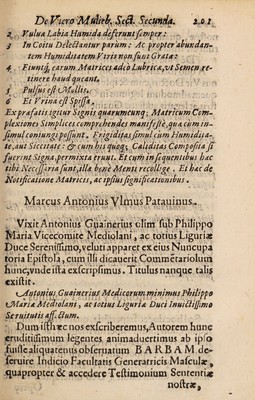 De Vtero Mulieb. Sect. Secunda. 201
2 Vulua Labia Humida deferunt semper:
3 In Coitu Delectantur parum: Ac propter abundan-
tem Humiditatem Viris non sunt Grata:
4 Fiuntq́; earum Matrices adeo Lubrica, vt Semen re-
tinere haud queant.
5 Pulsus est Mollis.
6 Et Vrina est Spissa.
Ex præfatis igitur Signis quarumcunq; Matricum Com-
plexiones Simplices comprehendes manifestè, qua cum in-
simul coniungi possunt, Frigiditas simul cum Humidita-
te, aut Siccitate: & cum his quoq; Caliditas Composita si
fuerint Signa permixta eruut. Et cum in sequentibus hæc
tibi Necessaria sunt, illa bene Menti recollige. Et hac de
Notificatione Matricis, ac ipsius significationibus.
Marcus Antonius Vlmus Patauinus.
Vixit Antonius Guainerius olim sub Philippo
Maria Vicecomite Mediolani, ac totius Liguriæ
Duce Serenissimo, veluti apparet ex eius Nuncupa
toria Epistola, cum illi dicauerit Commētariolum
hunc, vnde ista exscripsimus. Titulus nanque talis
existit.
Antonius Guainerius Medicorum minimus Philippo
Maria Mediolani, ac totius Liguria Duci Inuictissimo
Seruitutis affectum.
Dum isthæc nos exscriberemus, Autorem hunc
eruditissimum legentes animaduertimus ab ipso
fuisse aliquatenus obseruatum BARBAM de-
seruire Indicio Facultatis Generatricis Masculæ,
quapropter & accedere Testimonium Sententiæ
nostræ,